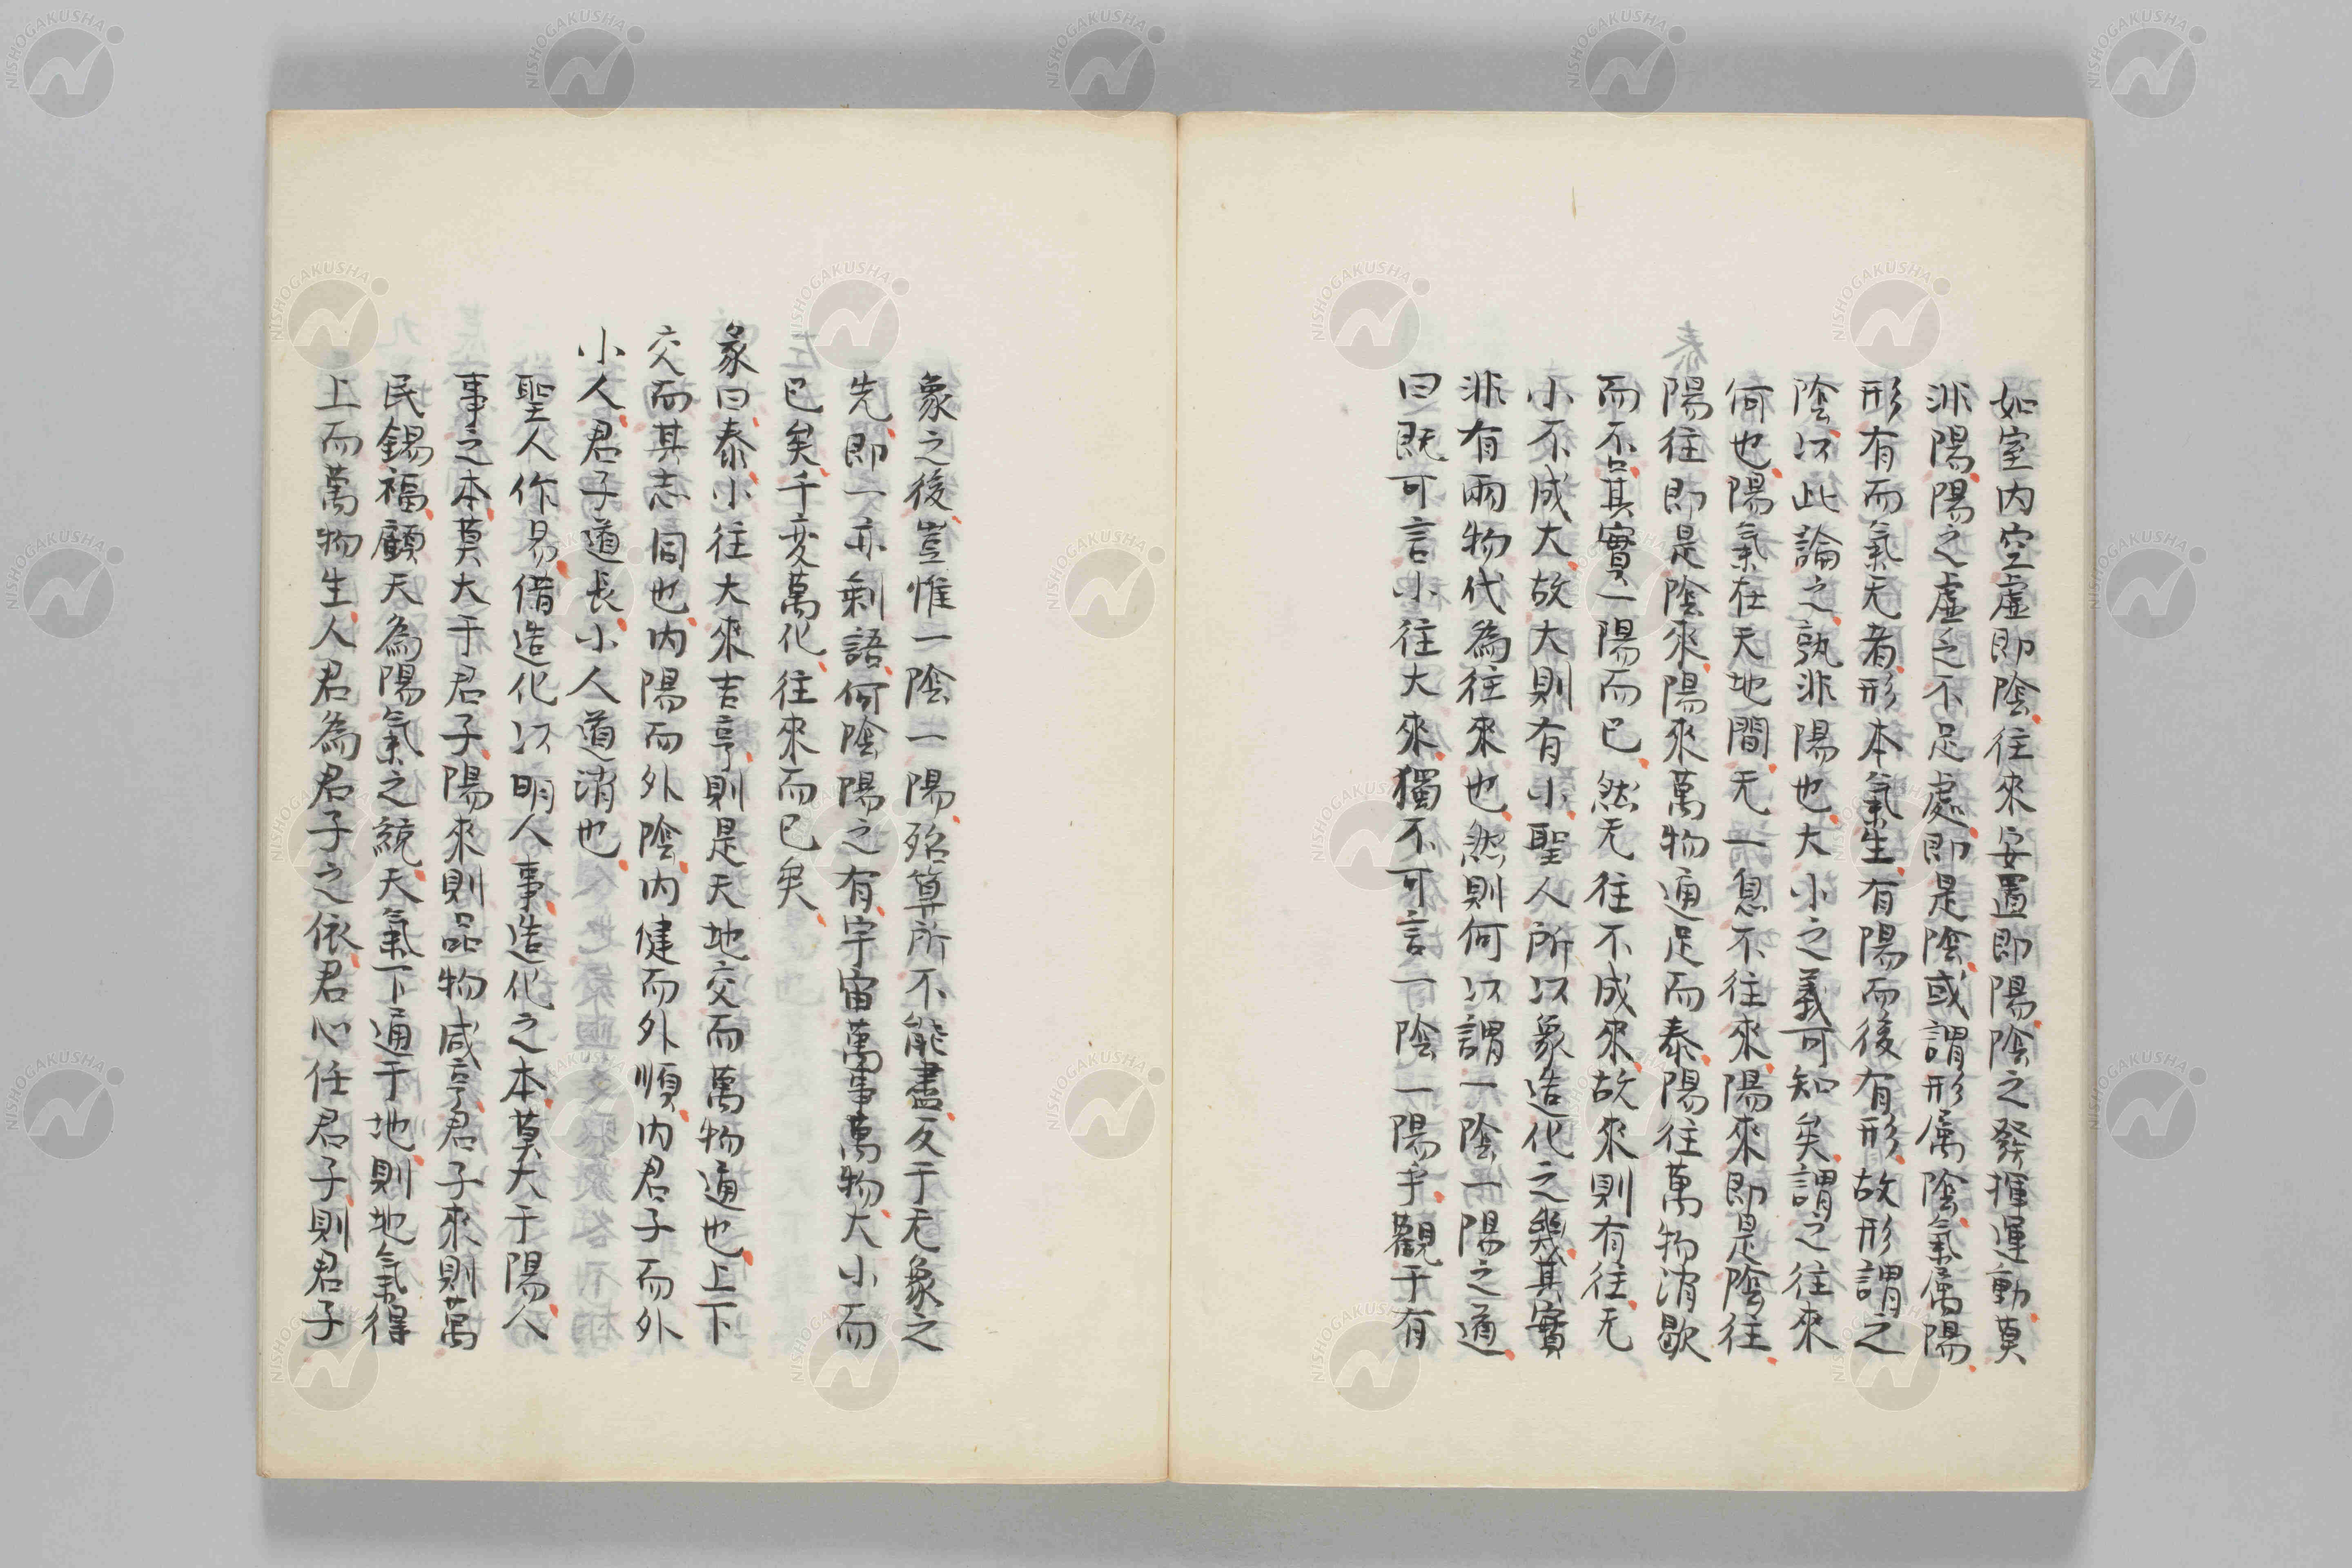 如室内空虛即陰往來安置即陽陰之發揮運動莫
非陽陽之虛乏不足處即是陰或謂形属陰氣属陽
形有而氣无者形本氣生有陽而後有形故形謂之
陰以此論之孰非陽也大小之義可知矣謂之往來
何也陽氣在天地間无一息不往來陽來即是陰往
陽往即是陰來陽來萬物通足而泰陽往萬物消歇
而不具其實一陽而已然无往不成來故來則有往无
小不成大故大則有小聖人所以象造化之幾其實
非有兩物代為往來也然則何以謂一陰一陽之道
曰既可言小往大來獨不可言一陰一陽乎觀于有
象之後豈惟一陰一陽殆算所不能盡反于无象之
先即一亦剩語何陰陽之有宇宙萬事萬物大小而
已矣千変萬化往來而已矣
彖曰泰小往大來吉亨則是天地交而萬物通也上下
交而其志同也内陽而外陰内健而外順内君子而外
小人君子道長小人道消也
聖人作易借造化以明人事造化之本莫大于陽人
事之本莫大于君子陽來則品物咸亨君子來則萬
民錫福顧天為陽氣之統天氣下通于地則地氣得
上而萬物生人君為君子之依君心任君子則君子
NISHOGAKUSHA